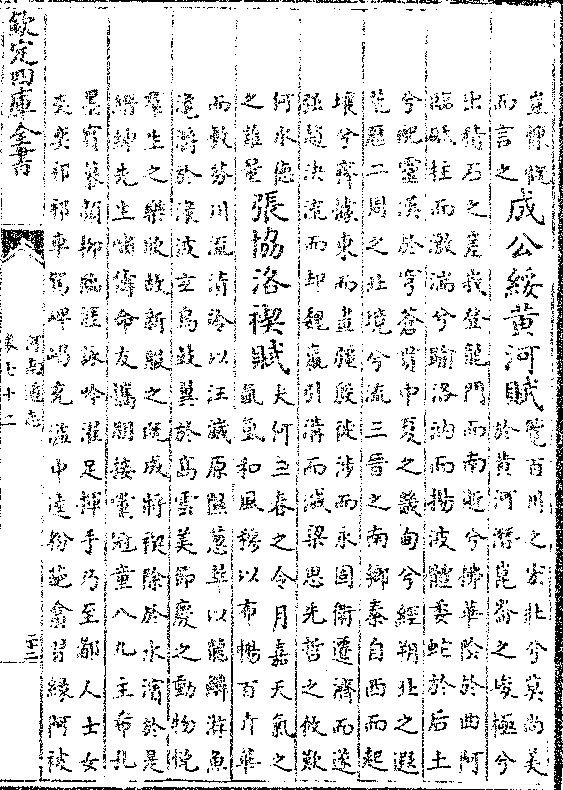 豈慷慨
而言之
成公綏黃河賦
覽百川之宏壯兮莫尚美
於黃河潛崑崙之峻極兮
出積石之嵳峩登龍門而南逝兮拂華陰於曲阿
臨砥柱而激湍兮踰洛汭而揚波體委蛇於后土
兮配靈漢於穹蒼貫中夏之畿甸兮經朔北之遐
荒歷二周之北境兮流三晉之南鄉秦自西而起
壤兮齊據東而畫疆殷徒涉而永固衛遷濟而遂
强趙決流而却魏嬴引溝而滅梁思先哲之攸歎
何水德
之難量
張協洛禊賦
夫何三春之令月嘉天氣之
氤氲和風穆以布暢百卉華
而敷芬川流清泠以汪濊原隰葱翠以龍鱗游魚
瀺灂於淥波玄鳥鼓翼於高雲美節慶之動物悅
羣生之樂欣故新服之既成將禊除於水濱於是
縉紳先生嘯儔命友攜朋接黨冠童八九主希孔
墨賓慕顔柳臨涯詠吟濯足揮手乃至都人士女
奕奕祁祁車駕岬嵑充溢中逵粉葩翕習緑阿被
欽定四庫全書
河南通志
卷七十二